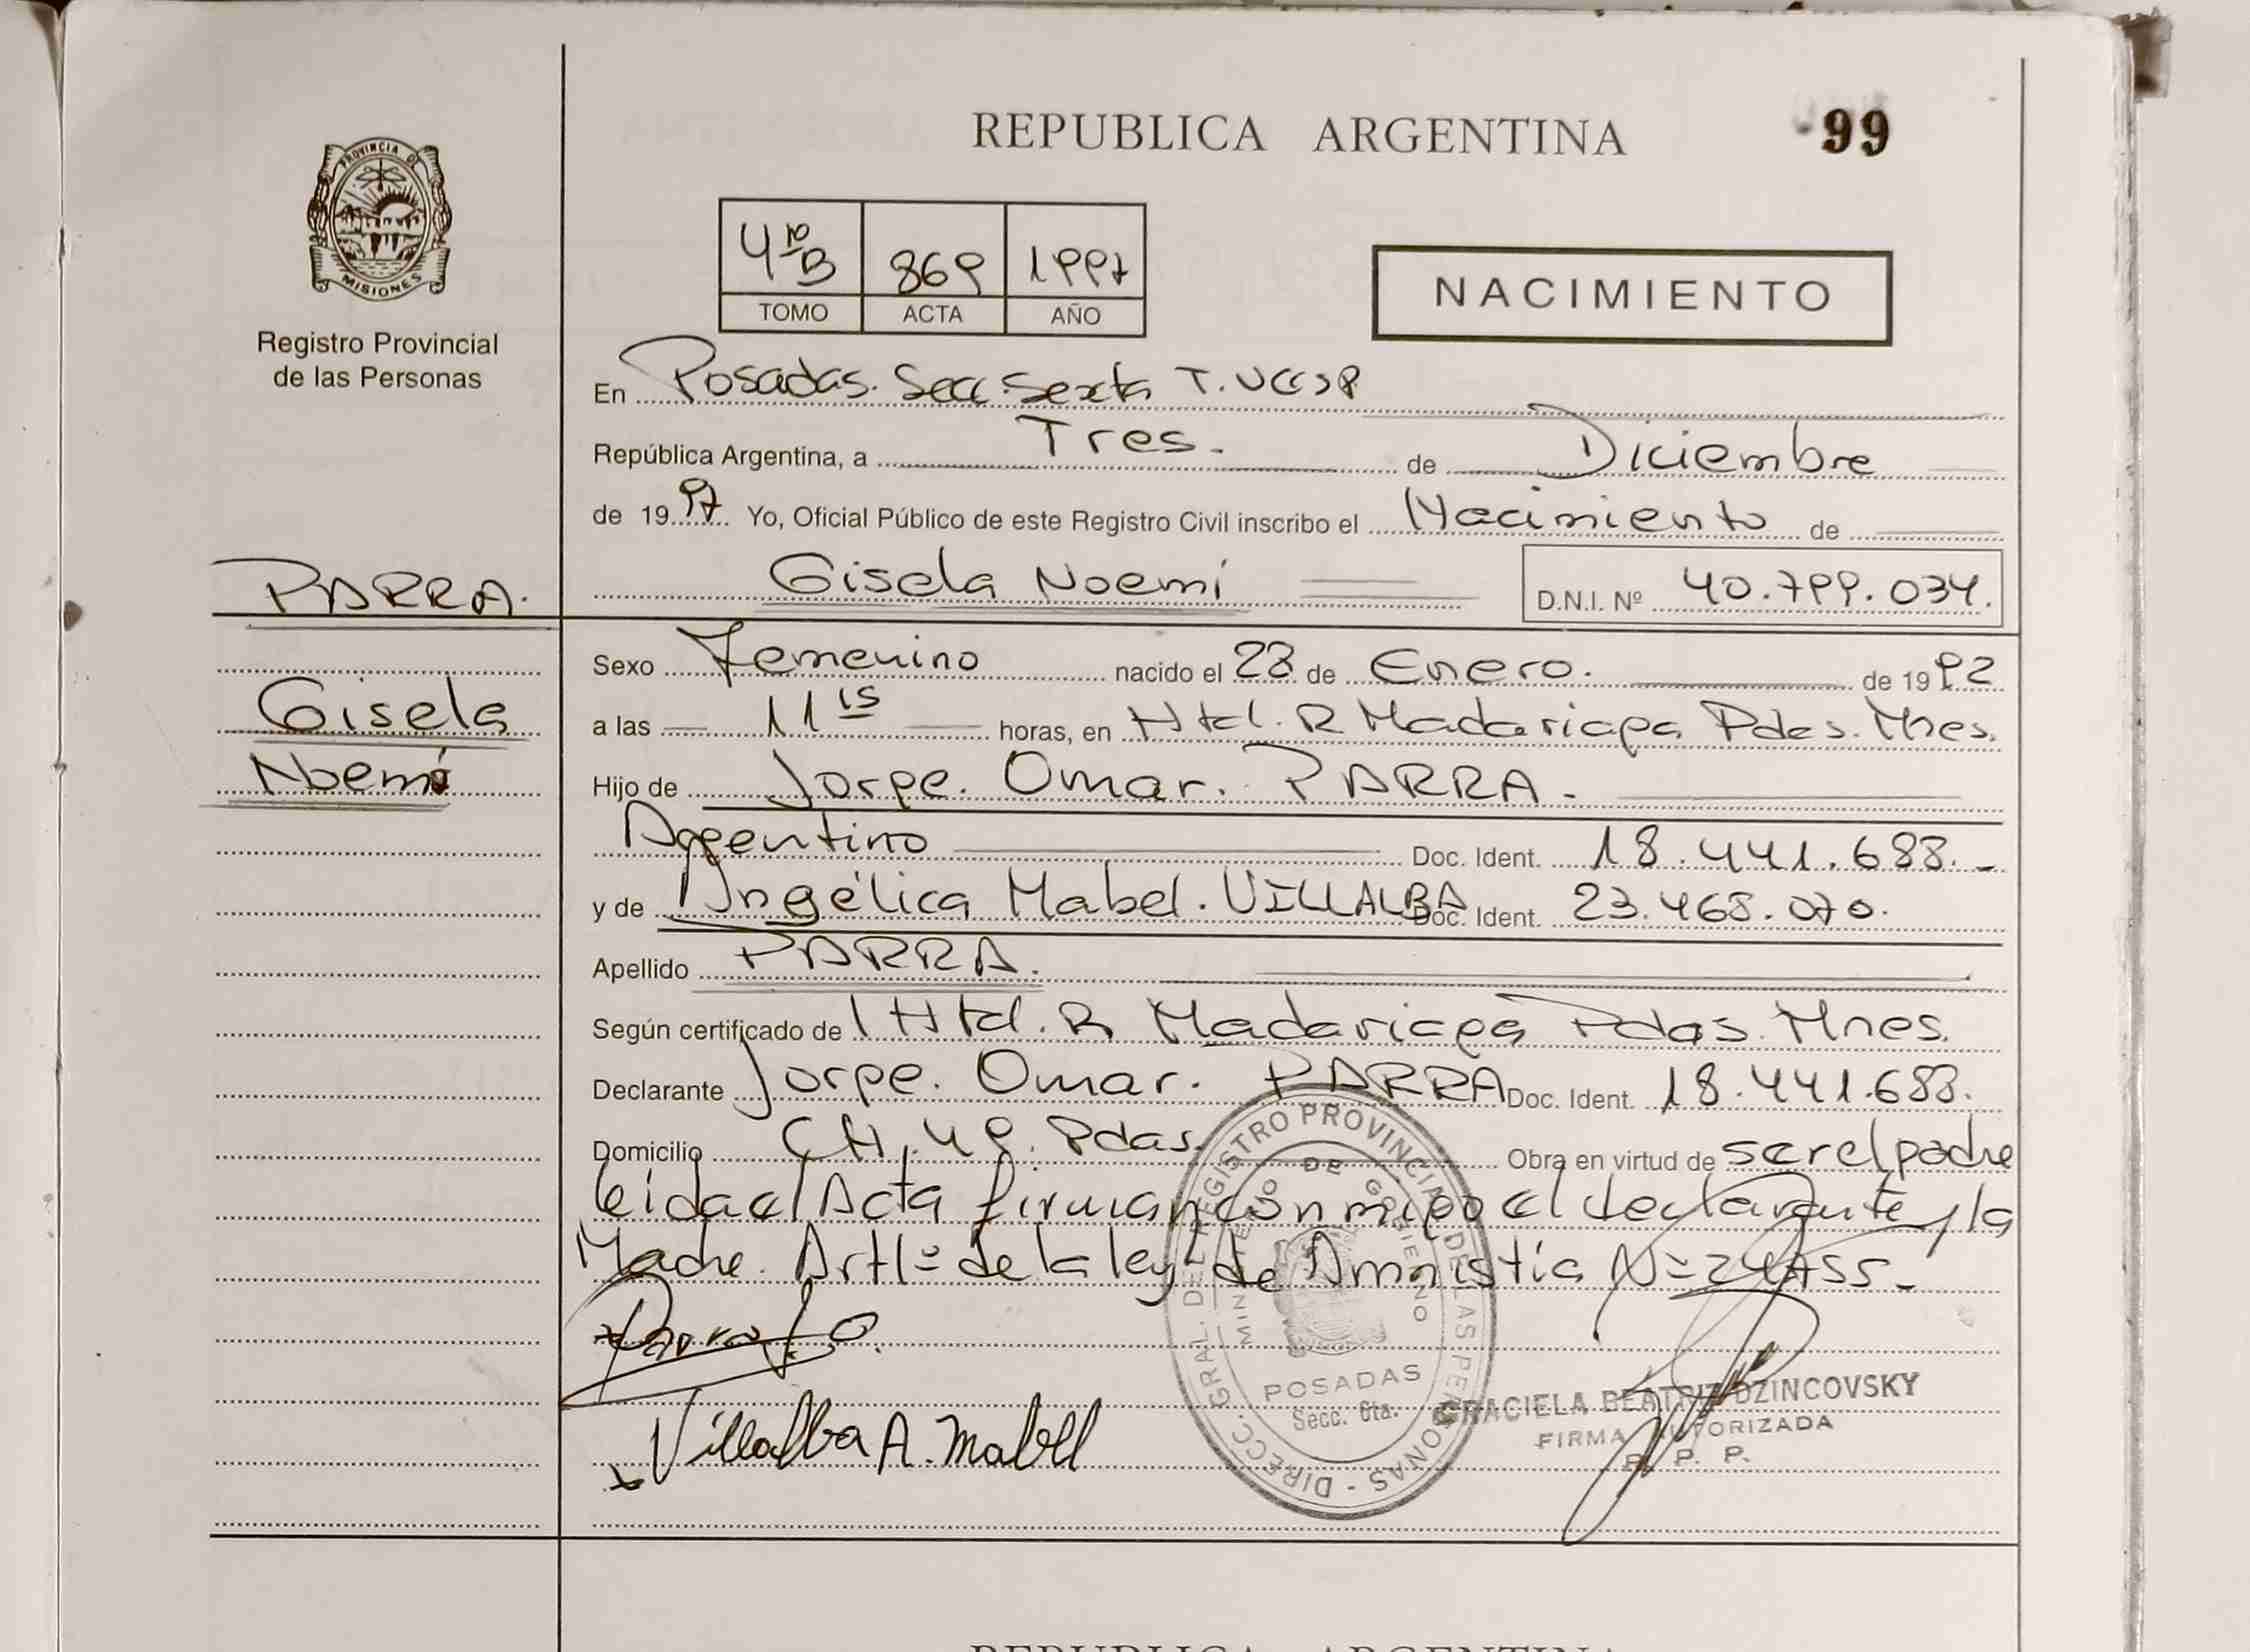 REPUBLICA ARGENTINA
99
PROVINCIA DE
MISIONES
Registro Provincial
de las Personas
4to B 869 1997
TOMO ACTA AÑO
NACIMIENTO
En Posadas. Secc. Sexta
República Argentina, a Tres. de Diciembre
de 1997 Yo, Oficial Público de este Registro Civil inscribo el Nacimiento de
Gisela Noemí D.N.I. Nº 40.799.034.
PARRA.
Gisela
Noemí
Sexo Femenino nacido el 28 de Enero. de 1992
a las 11 15 horas, en Htal. R Madariaga Pdas. Mnes.
Hijo de Jorge. Omar. PARRA.
Argentino Doc. Ident. 18.441.688.
y de Angélica Mabel. VILLALBA Doc. Ident. 23.468.070.
Apellido PARRA.
Según certificado de l Htal. R Madariaga Pdas. Mnes.
Declarante Jorge. Omar. PARRA Doc. Ident. 18.441.688.
Domicilio CH. 49. Pdas. Obra en virtud de ser el padre
leida el Acta firman conmigo el declarante y la
Madre. Art 1º de la ley de Amnistía Nº 24755.
Parra J. O.
Villalba A. Mabel
DIRECC. GRAL. DEL REGISTRO PROVINCIAL DE LAS PERSONAS
MINISTERIO DE GOBIERNO
POSADAS
Secc. 6ta.
GRACIELA BEATRIZ DZINCOVSKY
FIRMA AUTORIZADA
R. P. P.
REPUBLICA ARGENTINA